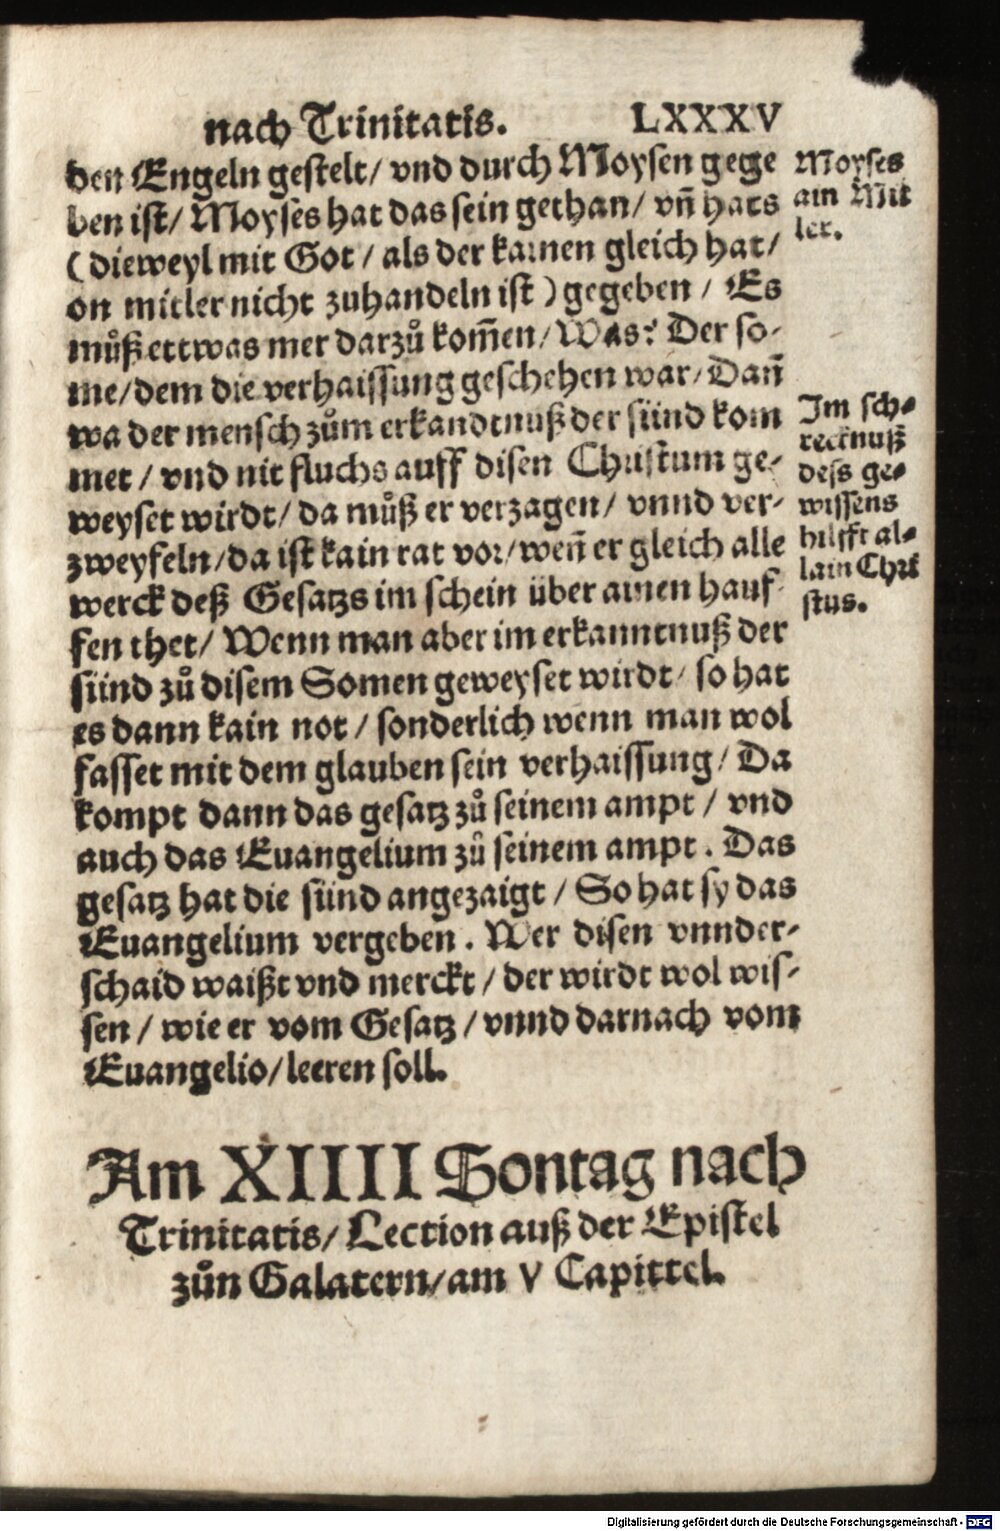 nach Trinitatis. LXXXV
den Engeln gestelt/ vnd durch Moysen gege
ben ist/ Moyses hat das sein gethan/ vñ hats
(dieweyl mit Got/ als der kainen gleich hat/
on mitler nicht zuhandeln ist) gegeben/ Es
můß ettwas mer darzů kom̄en/ Was? Der so-
me/ dem die verhaissung geschehen war/ Dañ
wa der mensch zům erkandtnuß der sünd kom
met/ vnd nit fluchs auff disen Christum ge-
weyset wirdt/ da můß er verzagen/ vnnd ver-
zweyfeln/ da ist kain rat vor/ weñ er gleich alle
werck deß Gesatzs im schein über ainen hauf
fen thet/ Wenn man aber im erkanntnuß der
sünd zů disem Somen geweyset wirdt/ so hat
es dann kain not/ sonderlich wenn man wol
fasset mit dem glauben sein verhaissung/ Da
kompt dann das gesatz zů seinem ampt/ vnd
auch das Euangelium zů seinem ampt. Das
gesatz hat die sünd angezaigt/ So hat sy das
Euangelium vergeben. Wer disen vnnder-
schaid waißt vnd merckt/ der wirdt wol wis-
sen/ wie er vom Gesatz/ vnnd darnach vom
Euangelio/ leeren soll.
Moyses
ain Mit
ler.
Im sch-
recknuß
dess ge-
wissens
hilfft al-
lain Chri
stus.
Am XIIII Sontag nach
Trinitatis/ Lection auß der Epistel
zůn Galatern/ am V Capittel.
Digitalisierung gefördert durch die Deutsche Forschungsgemeinschaft - DFG